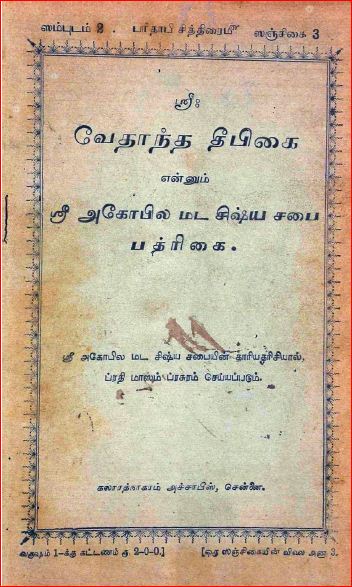 ஸம்புடம் 2. பரிதாபி சித்திரைமீ ஸஞ்சிகை 3
ஸ்ரீ:
வேதாந்த தீபிகை
என்னும்
ஸ்ரீ அகோபில மட சிஷ்ய சபை
பத்ரிகை.
ஸ்ரீ அகோபில மட சிஷ்ய சபையின் காரியதரிசியால்,
ப்ரதி மாஸமும் ப்ரசுரம் செய்யப்படும்.
கலாரத்நாகரம் அச்சாபீஸ், சென்னை.
வருஷம் 1-க்கு கட்டணம் ரூ 2-0-0.] [ஒரு ஸஞ்சிகையின் விலை அணா 3.